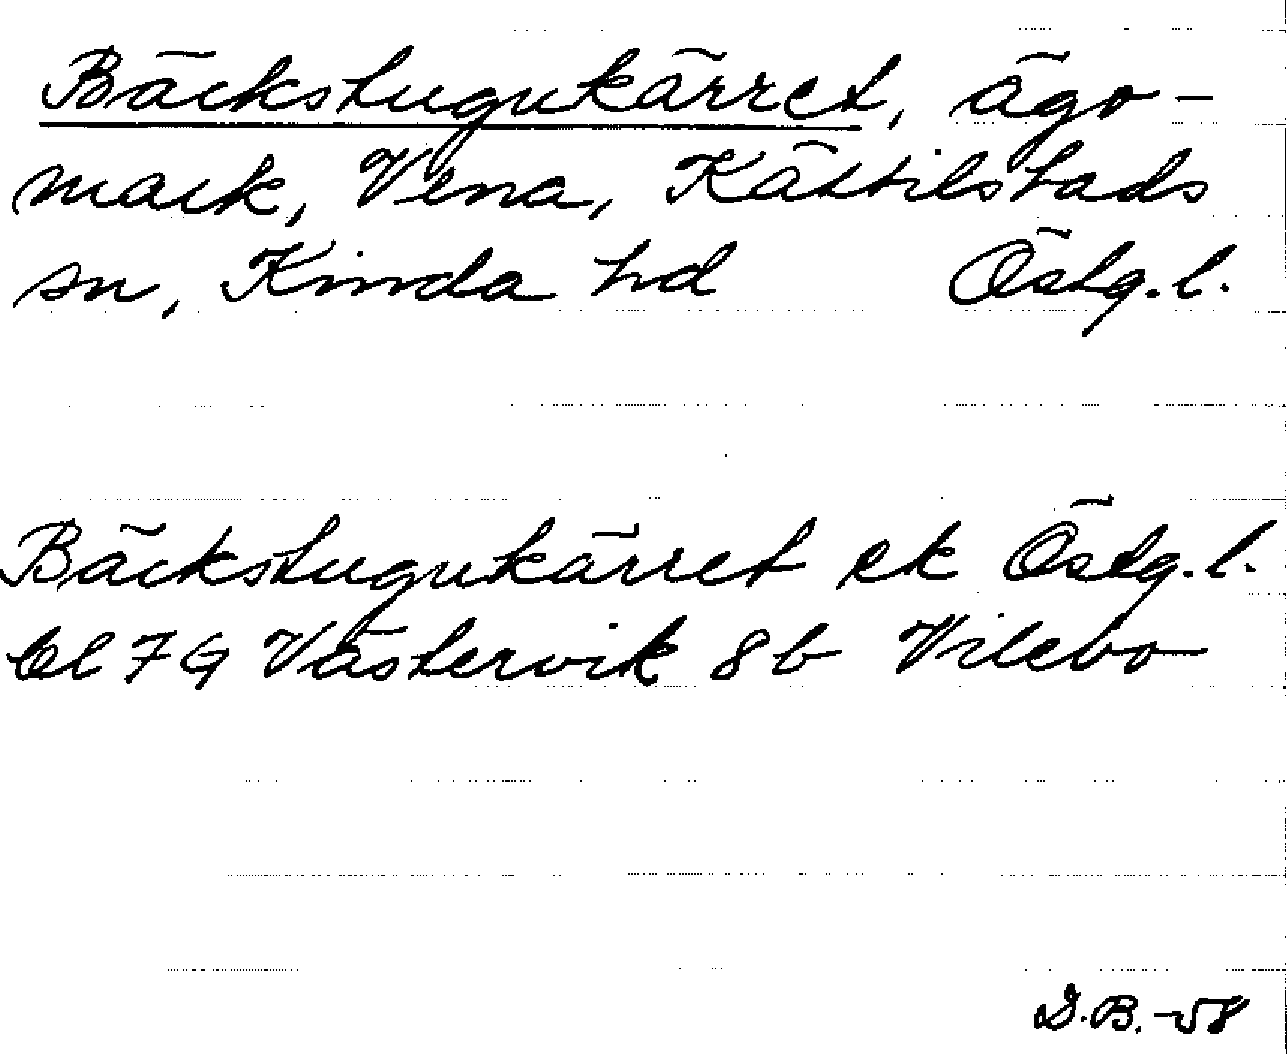 Bäckstugukärret, ägo-
mark, Vena, Kättilstads
sn, Kinda hd Östg. l.
Bäckstugukärret ek Östg. l.
bl 7G Västervik 8b Vilebo
D.B. -58